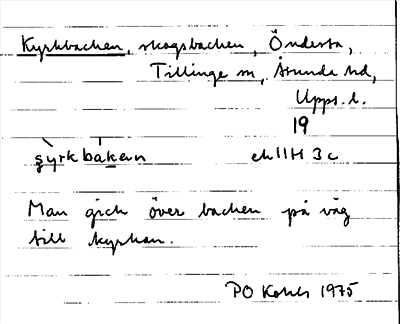 Kyrkbacken, skogsbacken, Öndersta,
Tillinge sn, Åsunda hd,
Upps. l.
19
çyrkbakɐn ek 11H 3c
Man gick över backen på väg
till kyrkan.
PO 1975